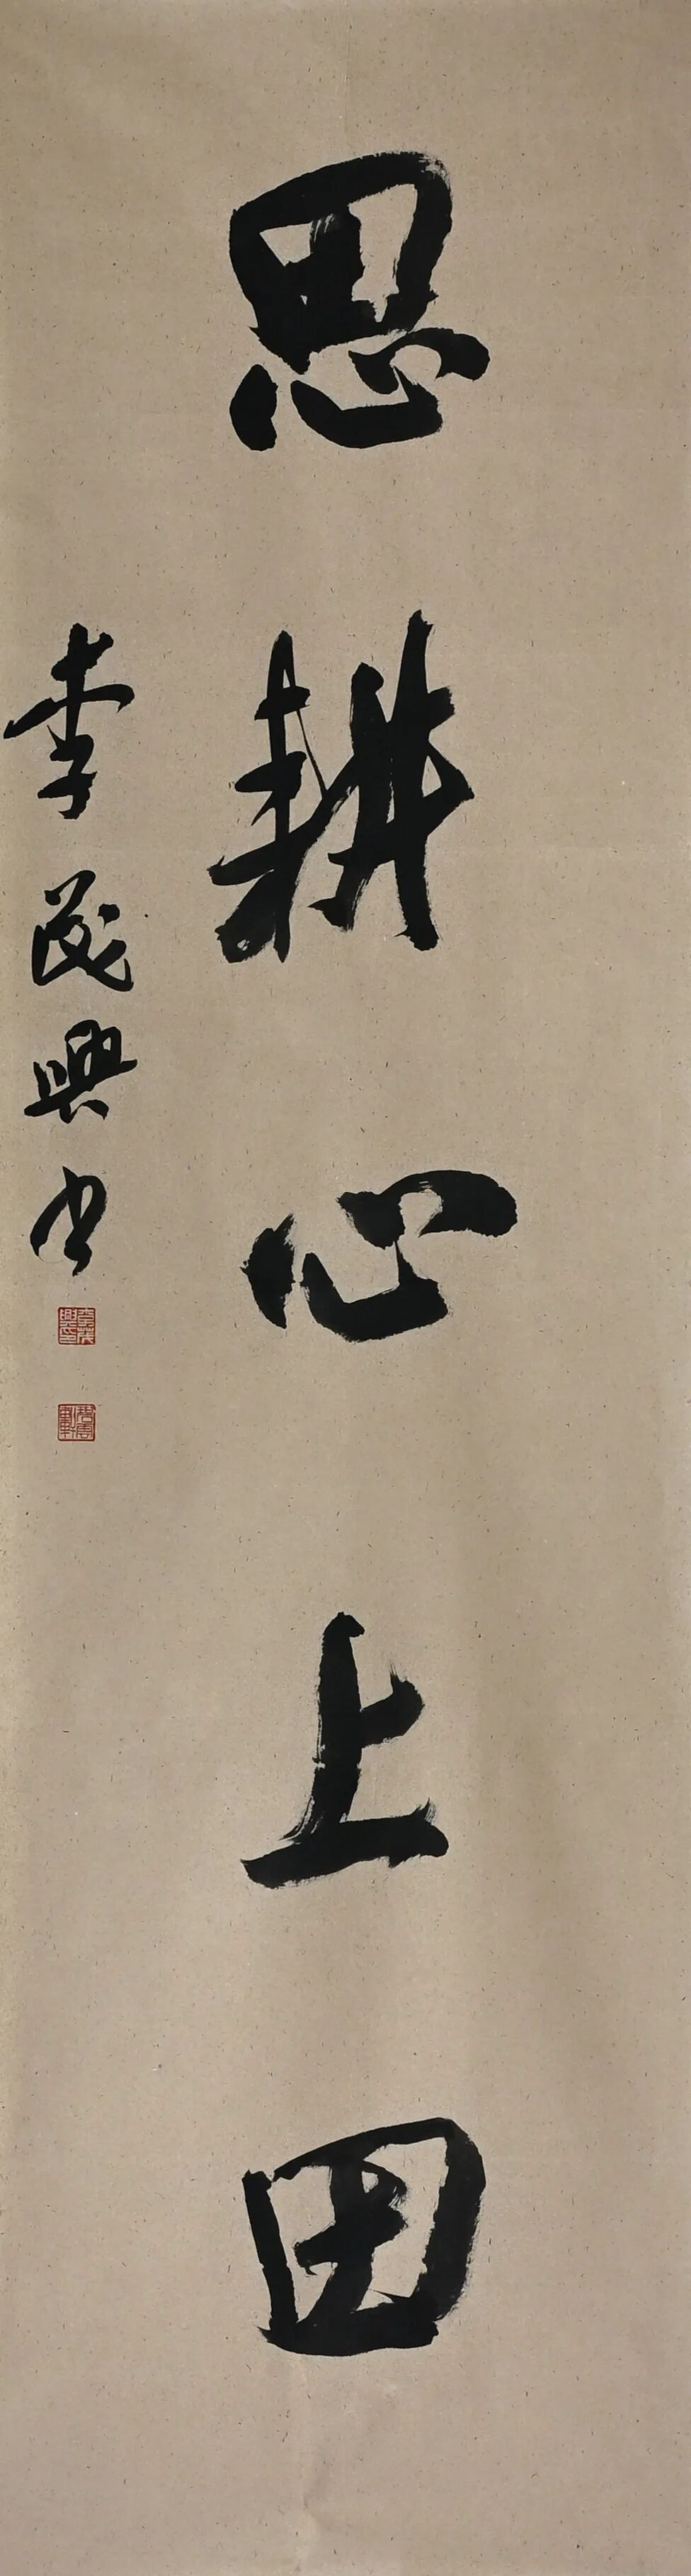 思耕心上田
李茂興书